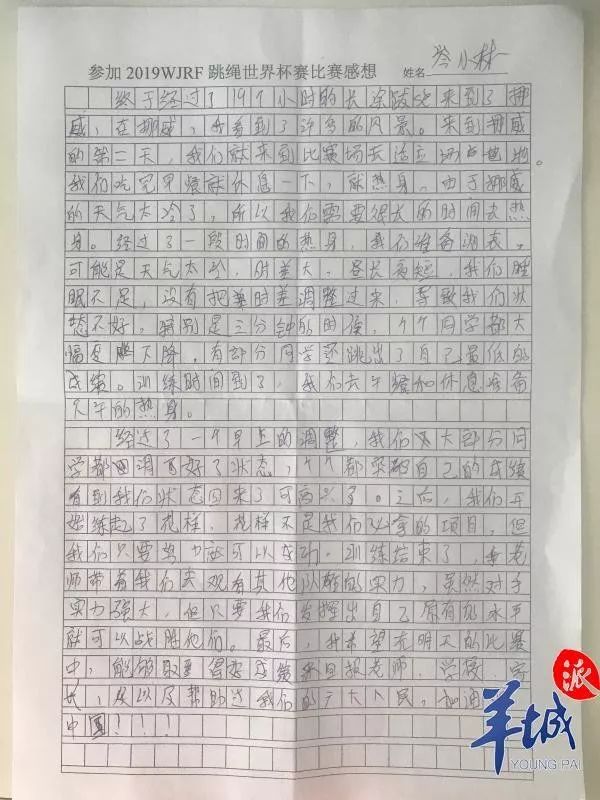 参加2019WJRF跳绳世界杯赛比赛感想 姓名 岑小林
终于经过了19个小时的长途陵 来到了挪
威，在挪威，我看到了许多的风景。来到挪威
的第二天，我们就来到比赛场去适应场地
我们吃完早餐就休息一下，就热身。由于挪威
的天气太冷了，所以我们需要很长的时间去热
身。经过了一段时间的热身，我们准备测表，
可能是天气太冷，时差大，昼长夜短，我们睡
眠不足，没有把 时差调整过来，导致我们状
态不好。特别是三分钟的时候，个个同学都大
幅度 下降，有部分同学 跳出了自己最低的
成绩。训练时间到了，我们去午餐和休息准备
下午的热身。
经过了一个早上的调整，我们 大部分同
学都 调 好了状态，个个都 自己的成绩
看到我们状态回来了可高兴了。之后，我们开
始练起了花样，花样不是我们必拿的项目，但
我们只要努力就可以成功。训练结束了， 老
师带着我们去观看其他 的实力，虽然对手
实力强大，但只要我们发挥出自己原有的水平
就可以战胜他们。最后，我希望在明天的比赛
中，能够取 得好成绩来回报老师、学校、家
长， 以及帮助过我们的广大人民，加油
中国！！！
派
羊城
YOUNG PAI